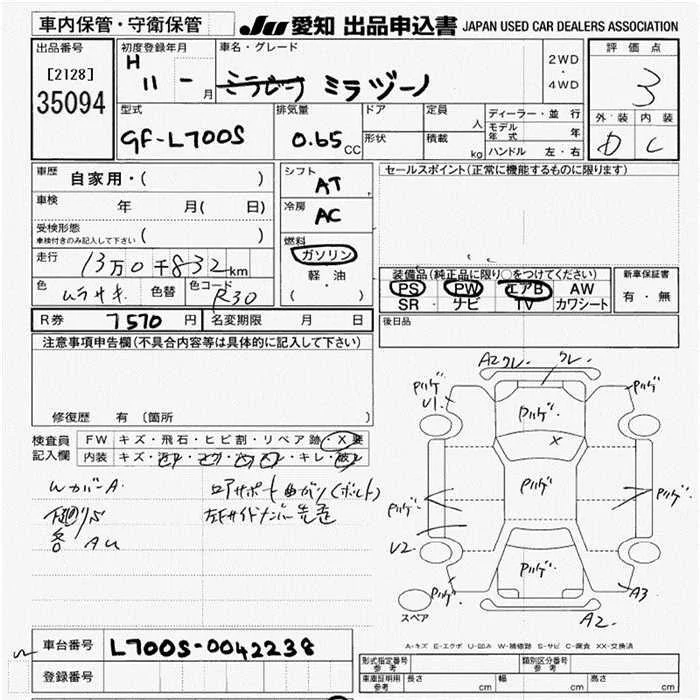 車内保管・守衛保管
JU 愛知 出品申込書 JAPAN USED CAR DEALERS ASSOCIATION
出品番号
[2128]
35094
初度登録年月
H 11 - 月
車名・グレード
ミラジーノ
2WD
・
4WD
評価点
3
外装 内装
D C
型式
GF-L700S
排気量
0.65 CC
ドア
形状
定員 人
積載 kg
ディーラー・並行
モデル年式 年
ハンドル 左・右
車歴 自家用・( )
車検 年 月( 日)
受検形態
車検付きのみ記入して下さい ( )
走行 13万0千832km
色 ムラサキ 色替 色コード R30
シフト
AT
冷房
AC
燃料
ガソリン
軽油
( )
セールスポイント(正常に機能するものに限ります)
装備品(純正品に限り○をつけてください)
PS PW エアB AW
SR ナビ TV カワシート
新車保証書
有・無
R券 7570 円 名変期限 月 日
後日品
注意事項申告欄(不具合内容等は具体的に記入して下さい)
修復歴 有 (箇所 )
検査員記入欄
FW キズ・飛石・ヒビ割・リペア跡・X要
内装
WカバーA
ロアサポート曲がり(ボルト)
下廻りS
左Fサイドナンバー先歪
各 AU
A2 ワレ. ワレ.
Pハゲ Pハゲ. Pハゲ
U1.
X
Pハゲ. Pハゲ Pハゲ.
U2.
Pハゲ. Pハゲ. A3
スペア
A2.
A-キズ E-エクボ U-凹み W-補修跡 S-サビ C-腐食 XX-交換済
車台番号 L700S-0042238
登録番号
形式指定番号 参考 類別区分番号 参考
車庫証明用 参考 長さ cm 幅 cm 高さ cm